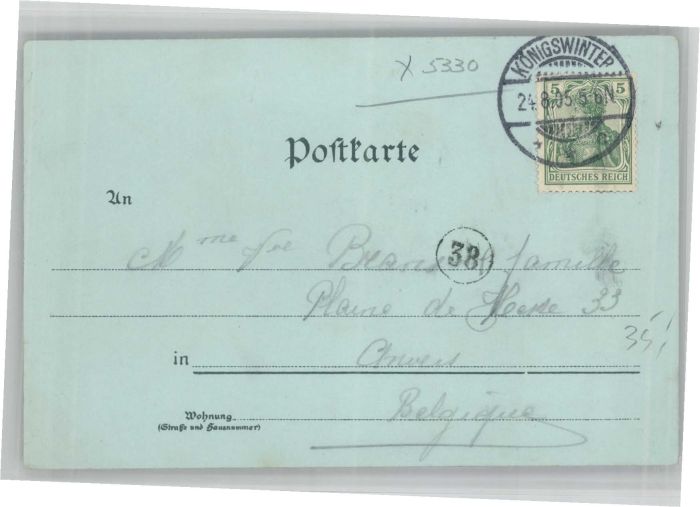 X 5330
KÖNIGSWINTER
24.8.05.5-6N.
5 5
DEUTSCHES REICH
Postkarte
An
Mme Vve & famille
38
Plaine de 33
35,!
in Anvers
Belgique
Wohnung
(Straße und Hausnummer)